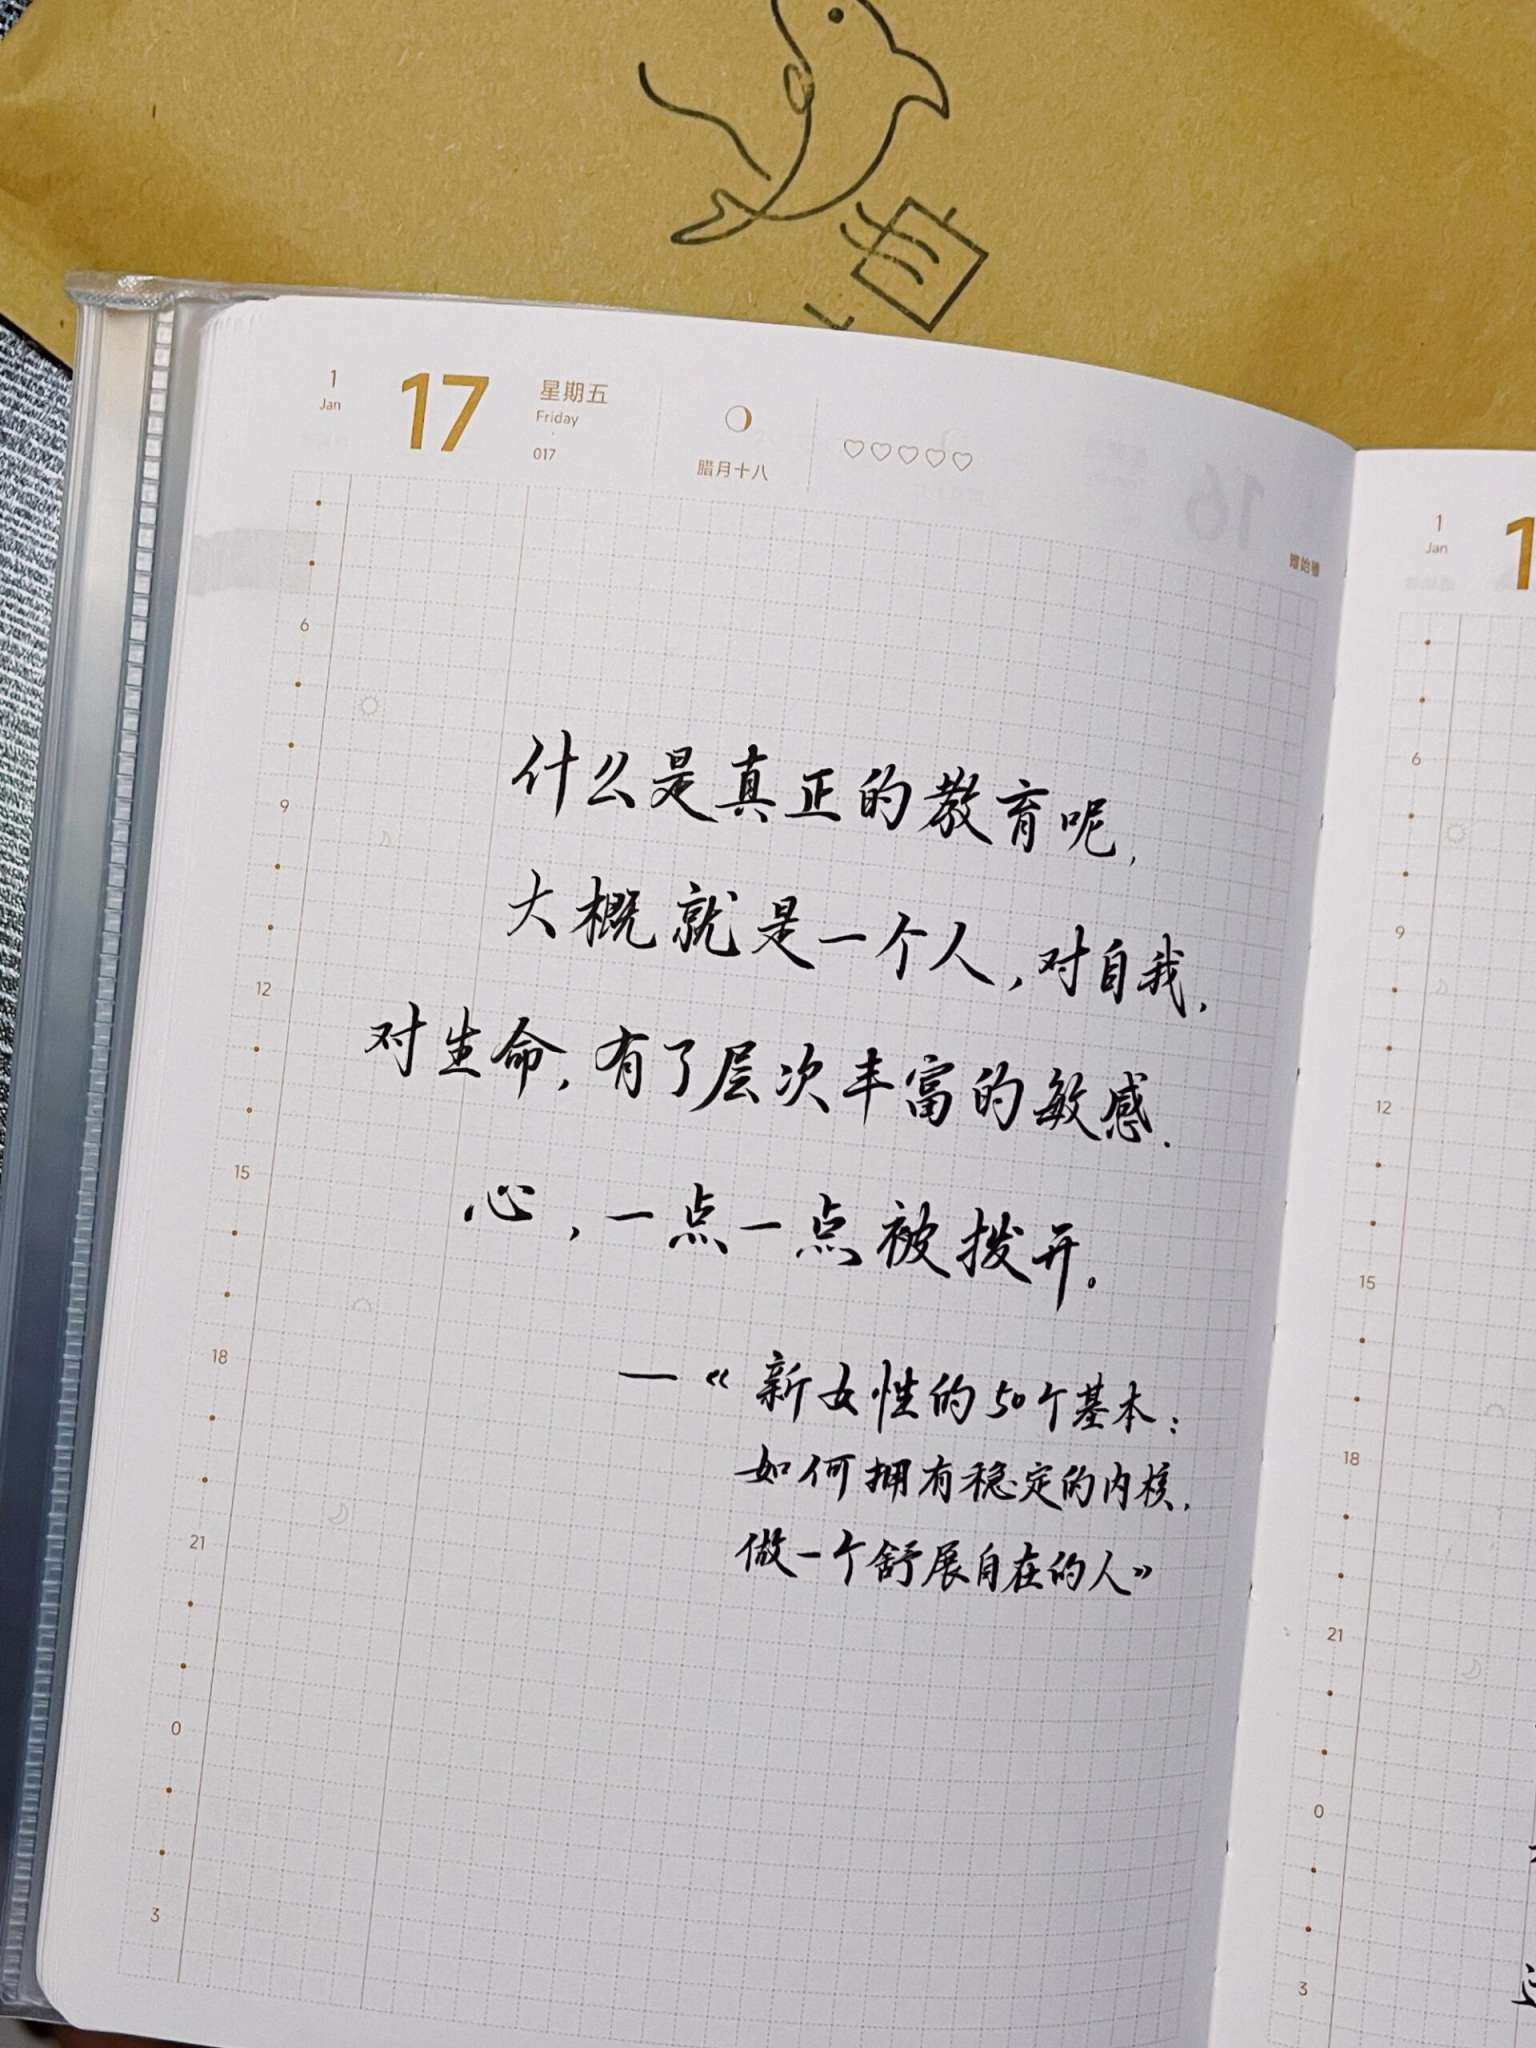 1
Jan
17
星期五
Friday
017
腊月十八
16
1
Jan
1
6
9
12
15
18
21
0
3
什么是真正的教育呢,
大概就是一个人,对自我,
对生命,有了层次丰富的敏感.
心,一点一点被拨开。
—《新女性的50个基本:
如何拥有稳定的内核,
做一个舒展自在的人》
6
9
12
15
18
21
0
3